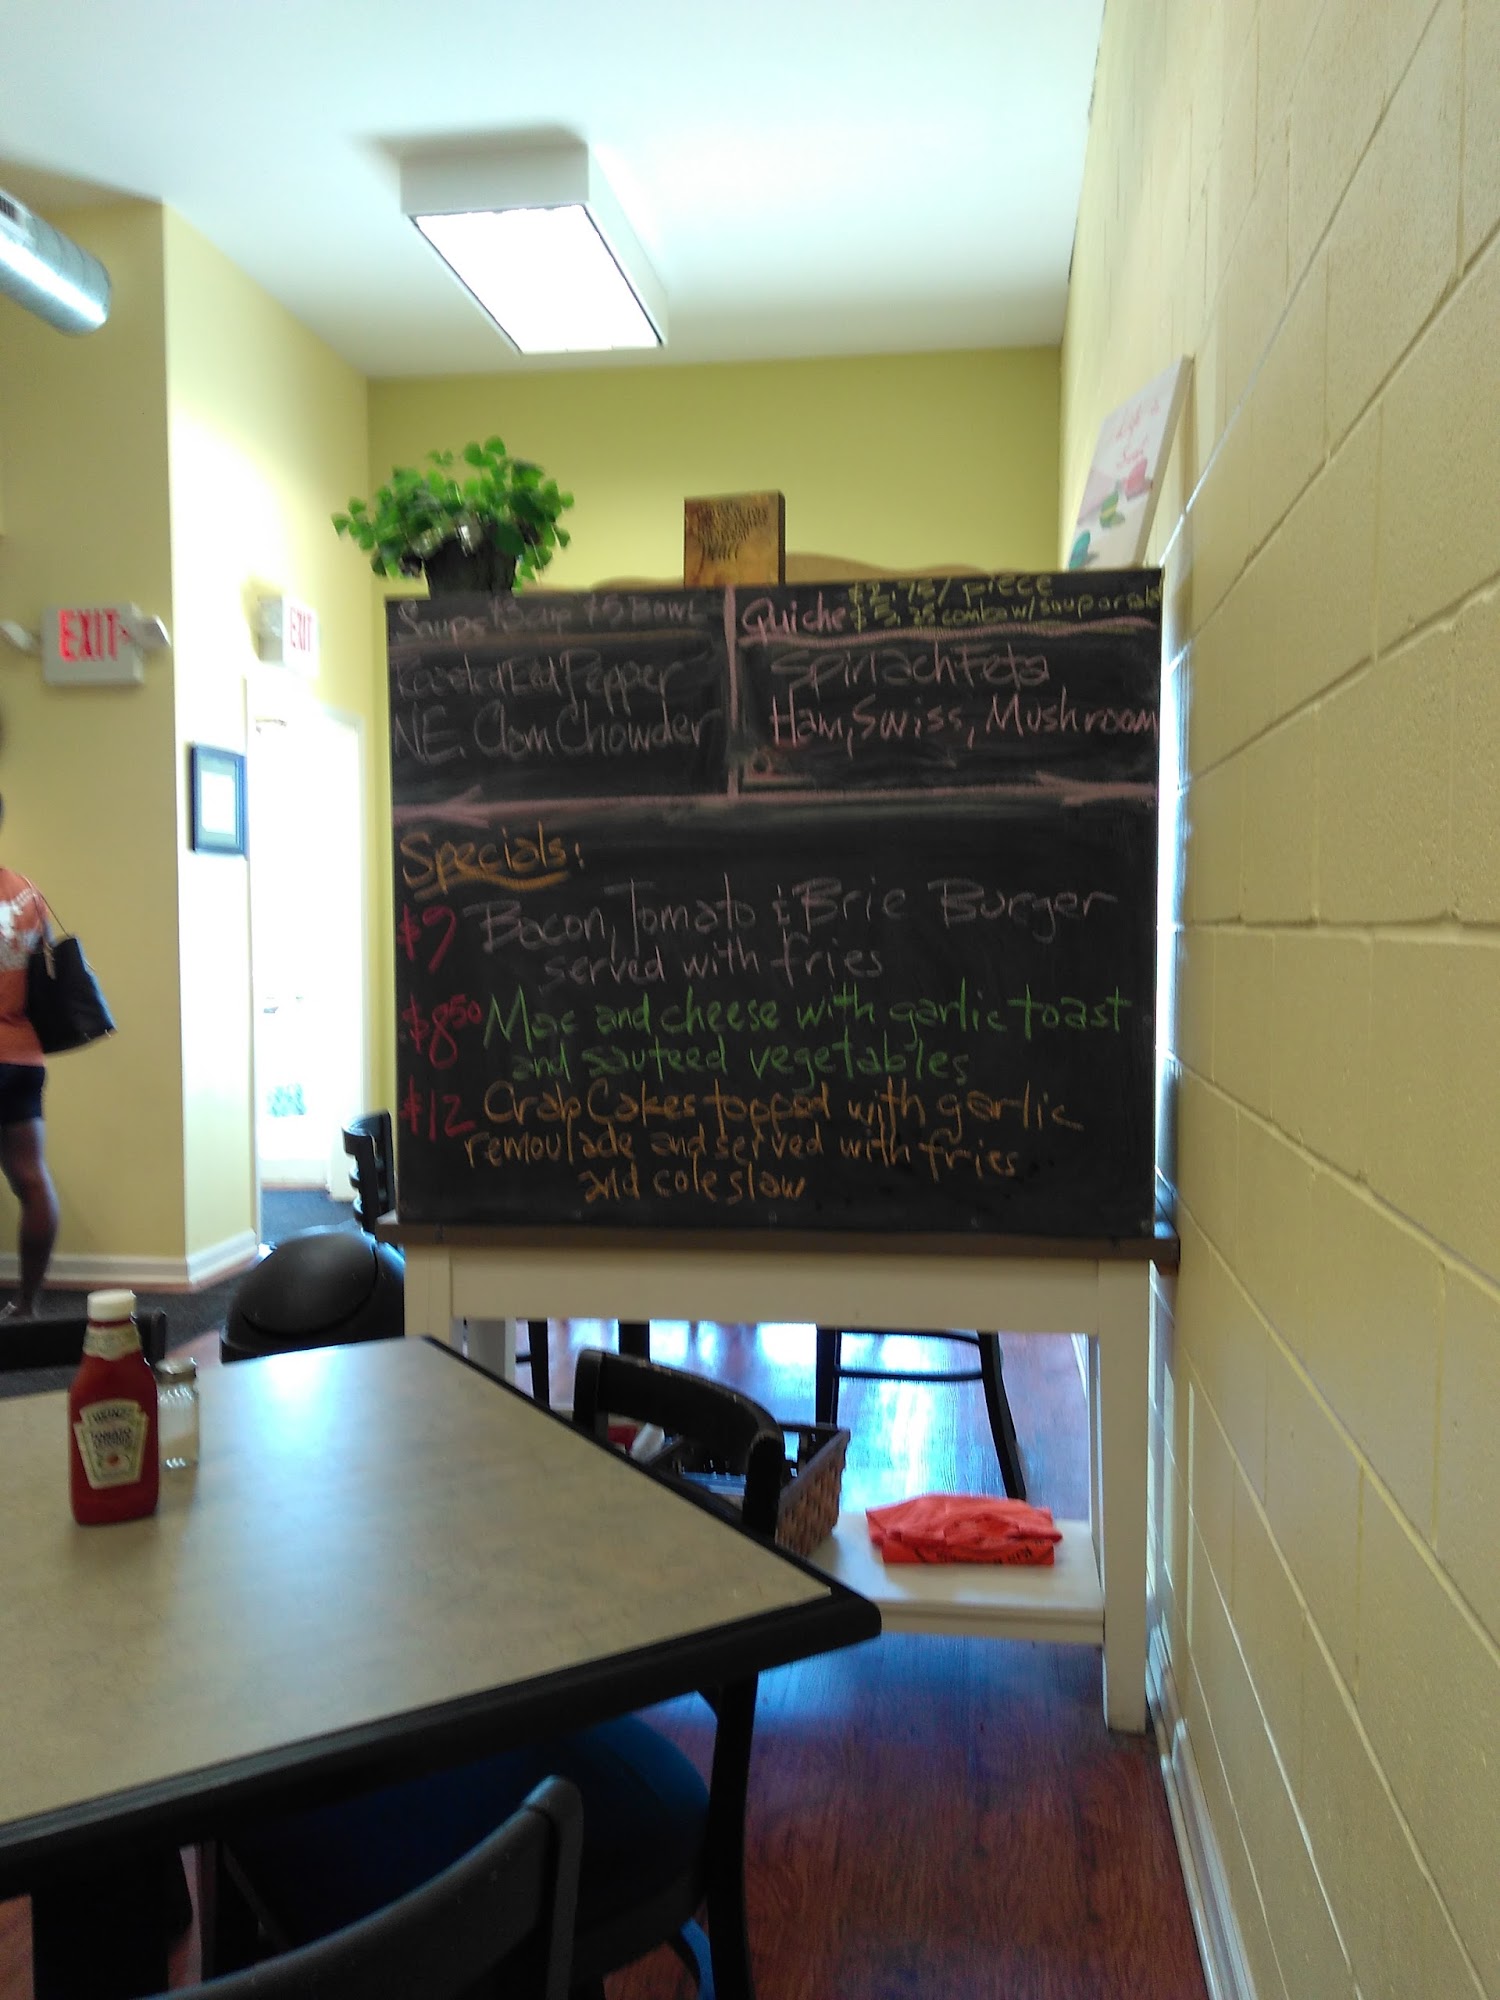 EXIT
EXIT
Soups $3 cup $5 Bowl
Roasted Red Pepper
N.E. Clam Chowder
$2.75/ piece
Quiche $5.25 combo w/ soup or salad
Spinach Feta
Ham, Swiss, Mushroom
Specials:
$9 Bacon, Tomato & Brie Burger
served with fries
$8.50 Mac and cheese with garlic toast
and sauteed vegetables
$12 Crab Cakes topped with garlic
remoulade and served with fries
and coleslaw
HEINZ
TOMATO
KETCHUP